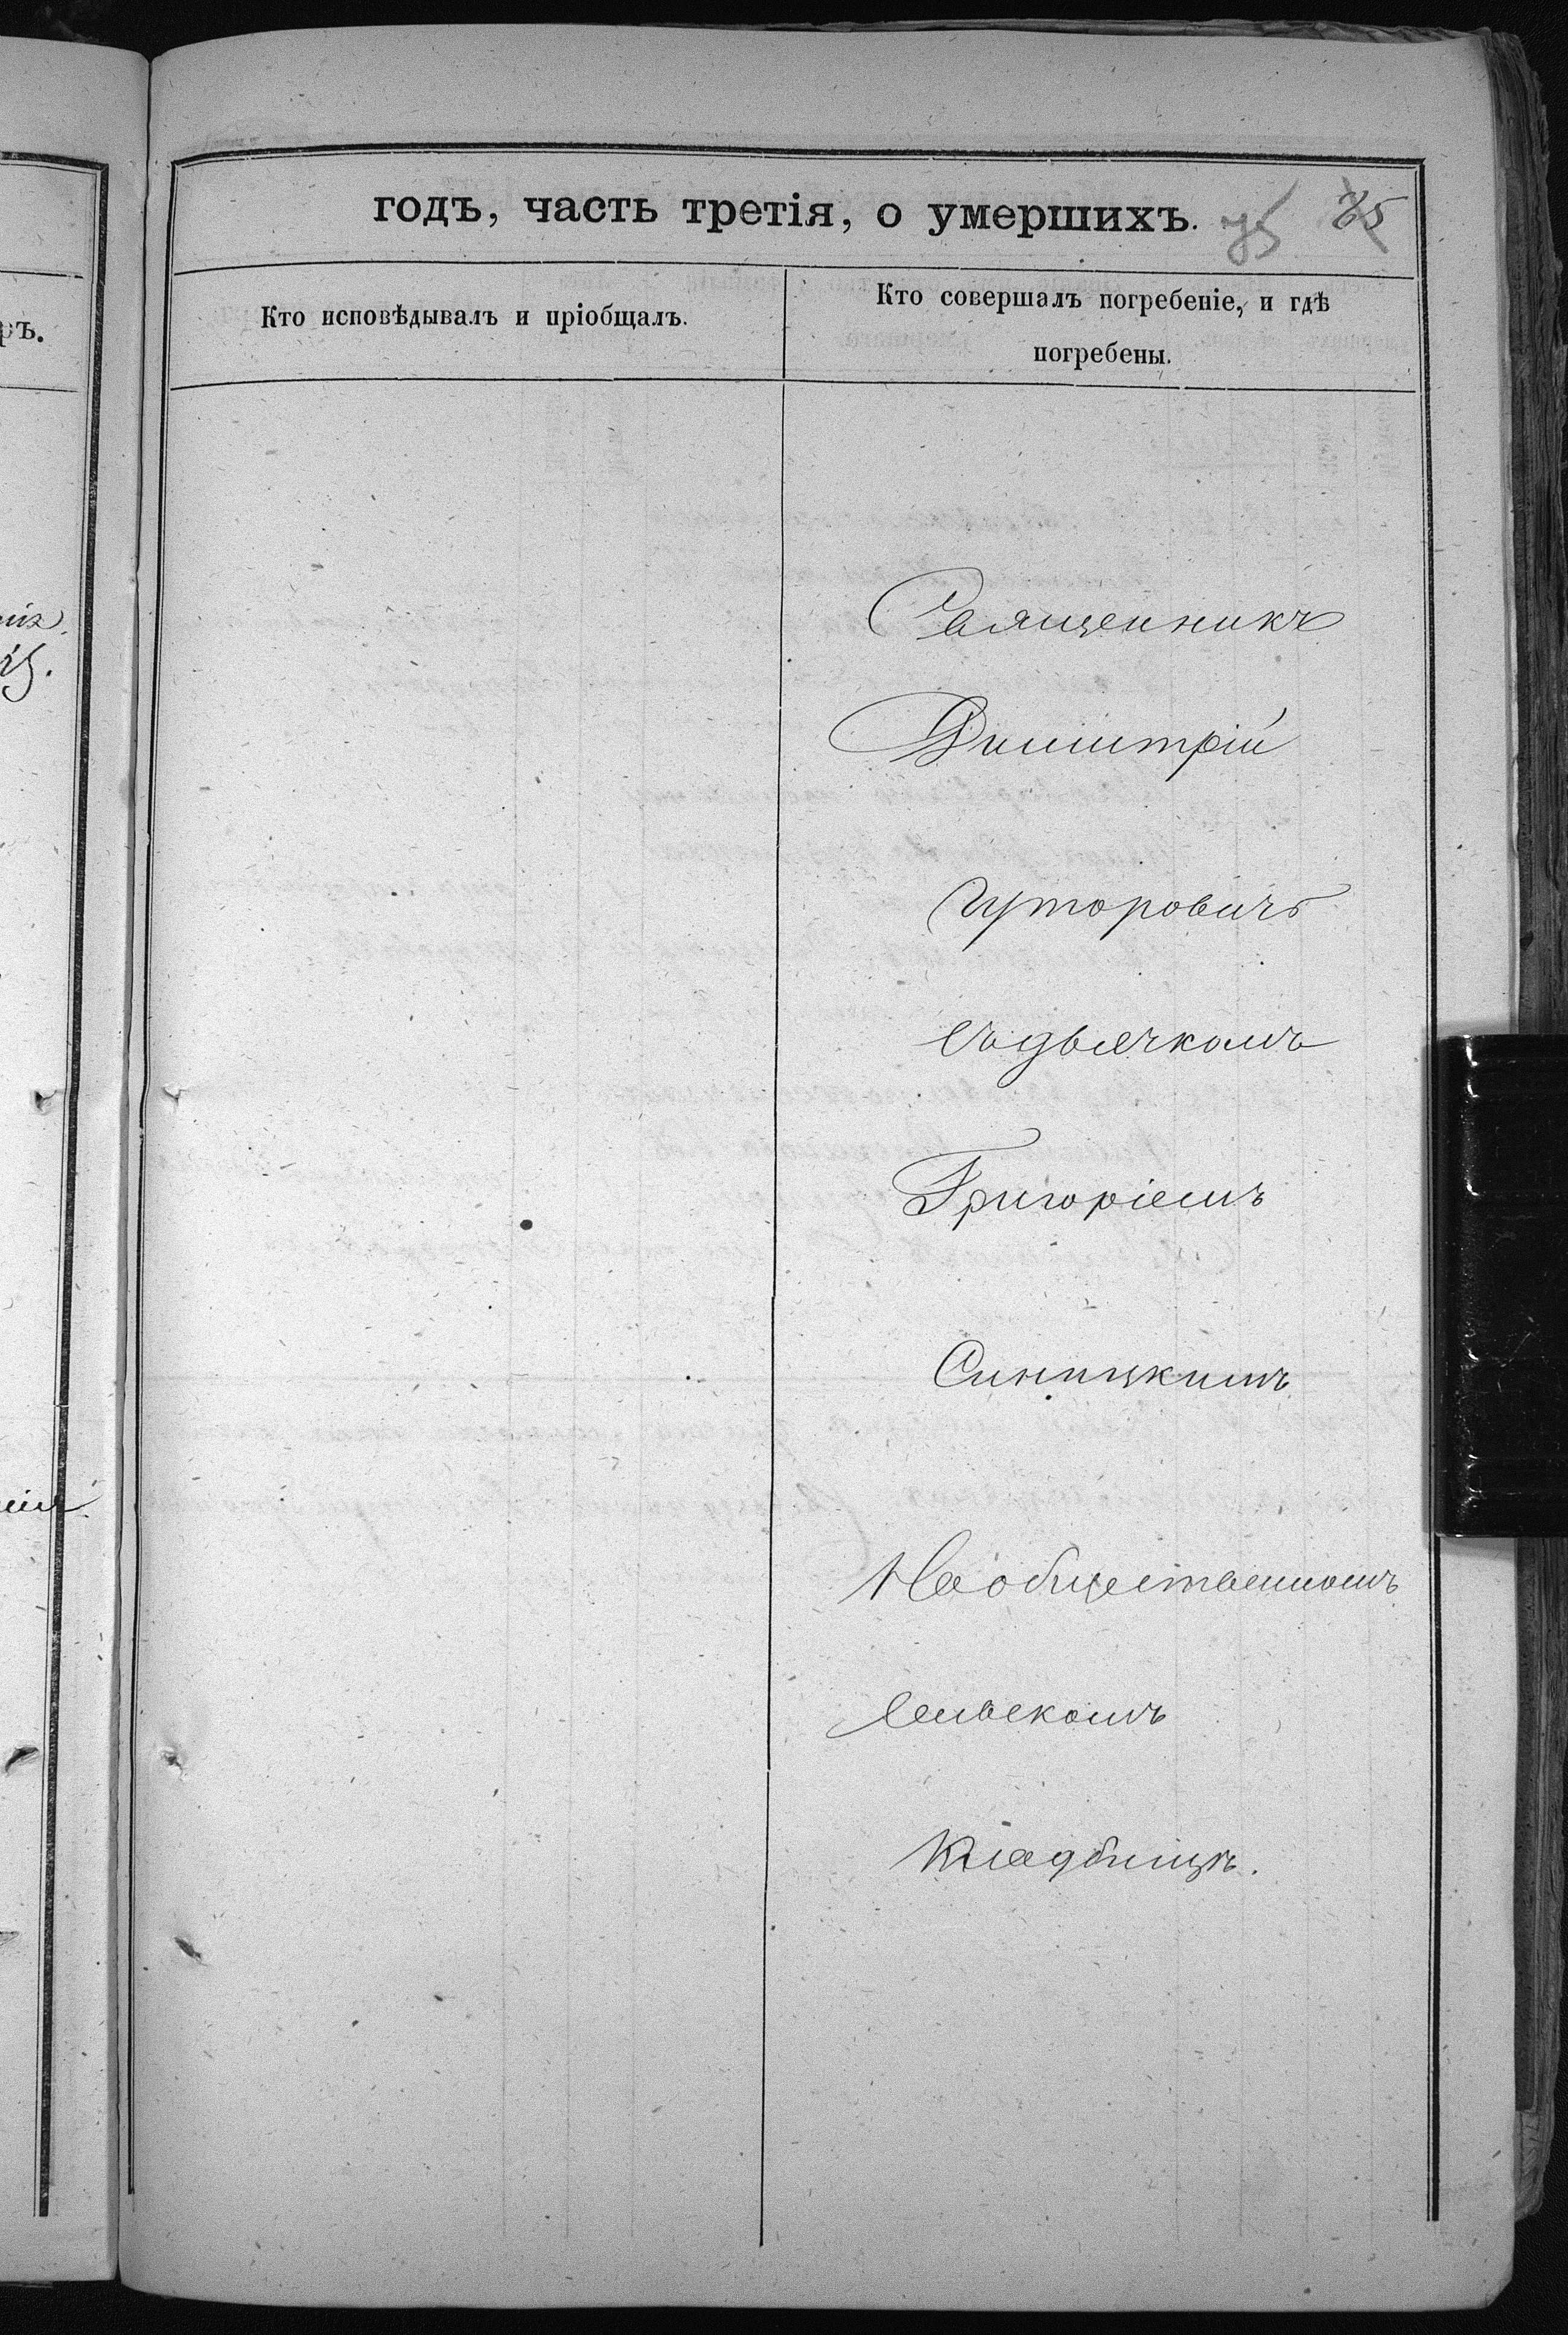 годъ, часть третія, о умершихъ. 75 75
Кто исповѣдывалъ и пріобщалъ.
Кто совершалъ погребеніе, и гдѣ
погребены.
ръ.
Священникъ
Димитрій
Гуторовичъ
Съ дьячкомъ
Григоріемъ
Синицкимъ
На общественномъ
сельскомъ
кладбищѣ.